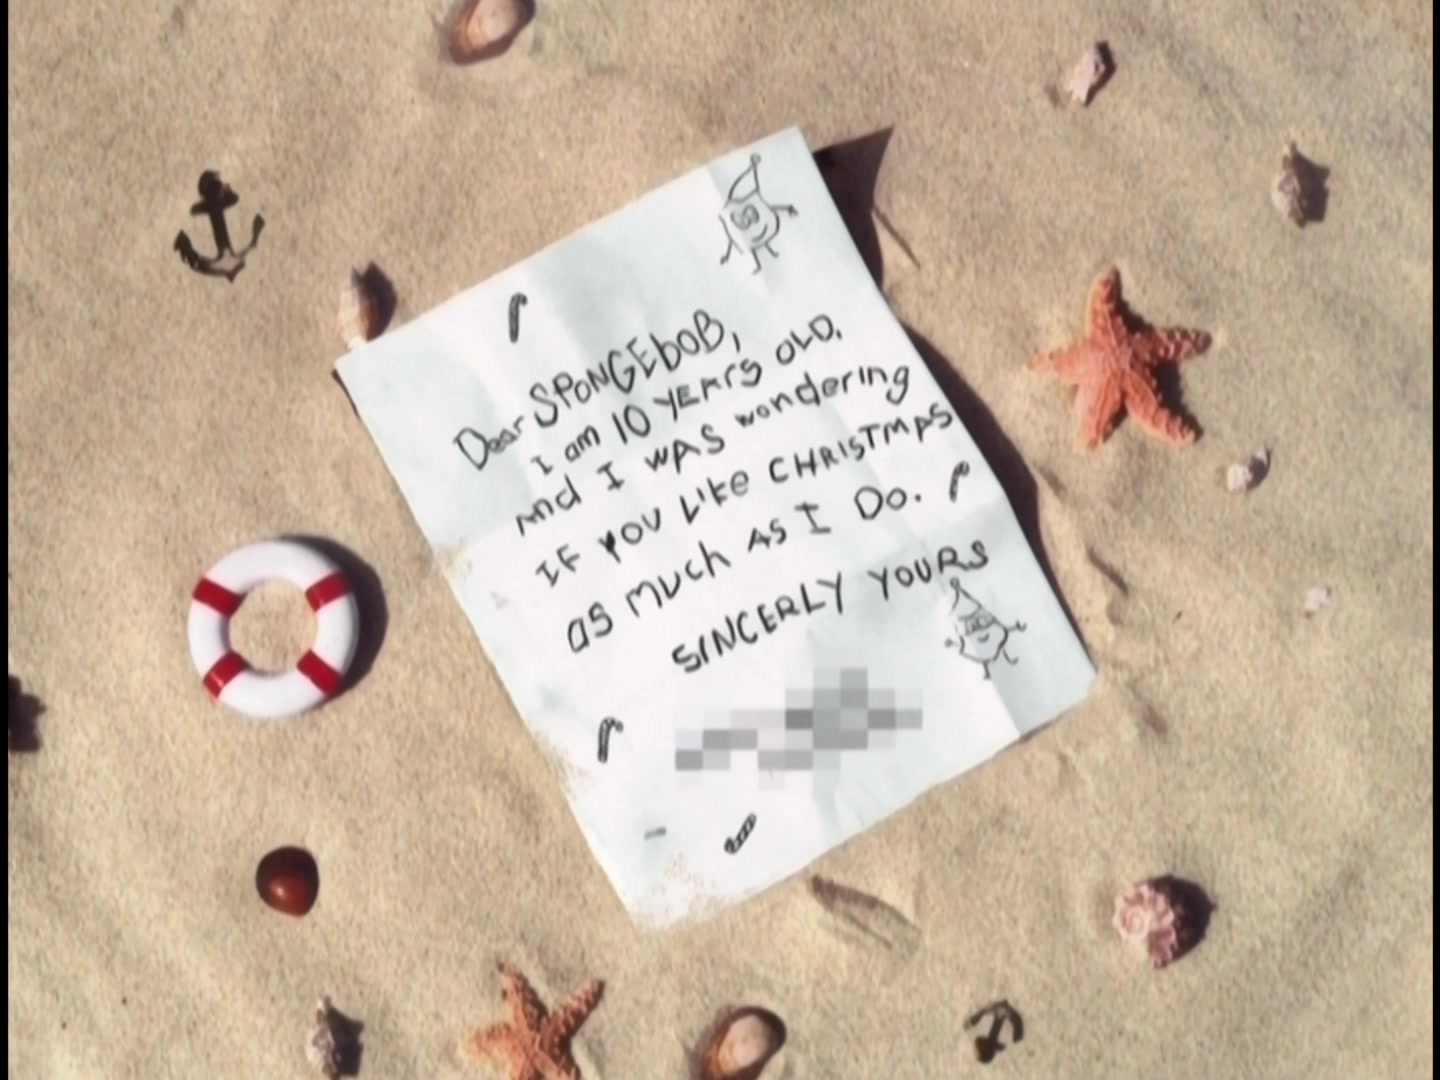 Dear SPONGEbOB,
I am 10 YEArs OLD.
And I WAS wondering
IF YOU Like CHRISTMAS
as much as I Do.
SINCERLY YOURS